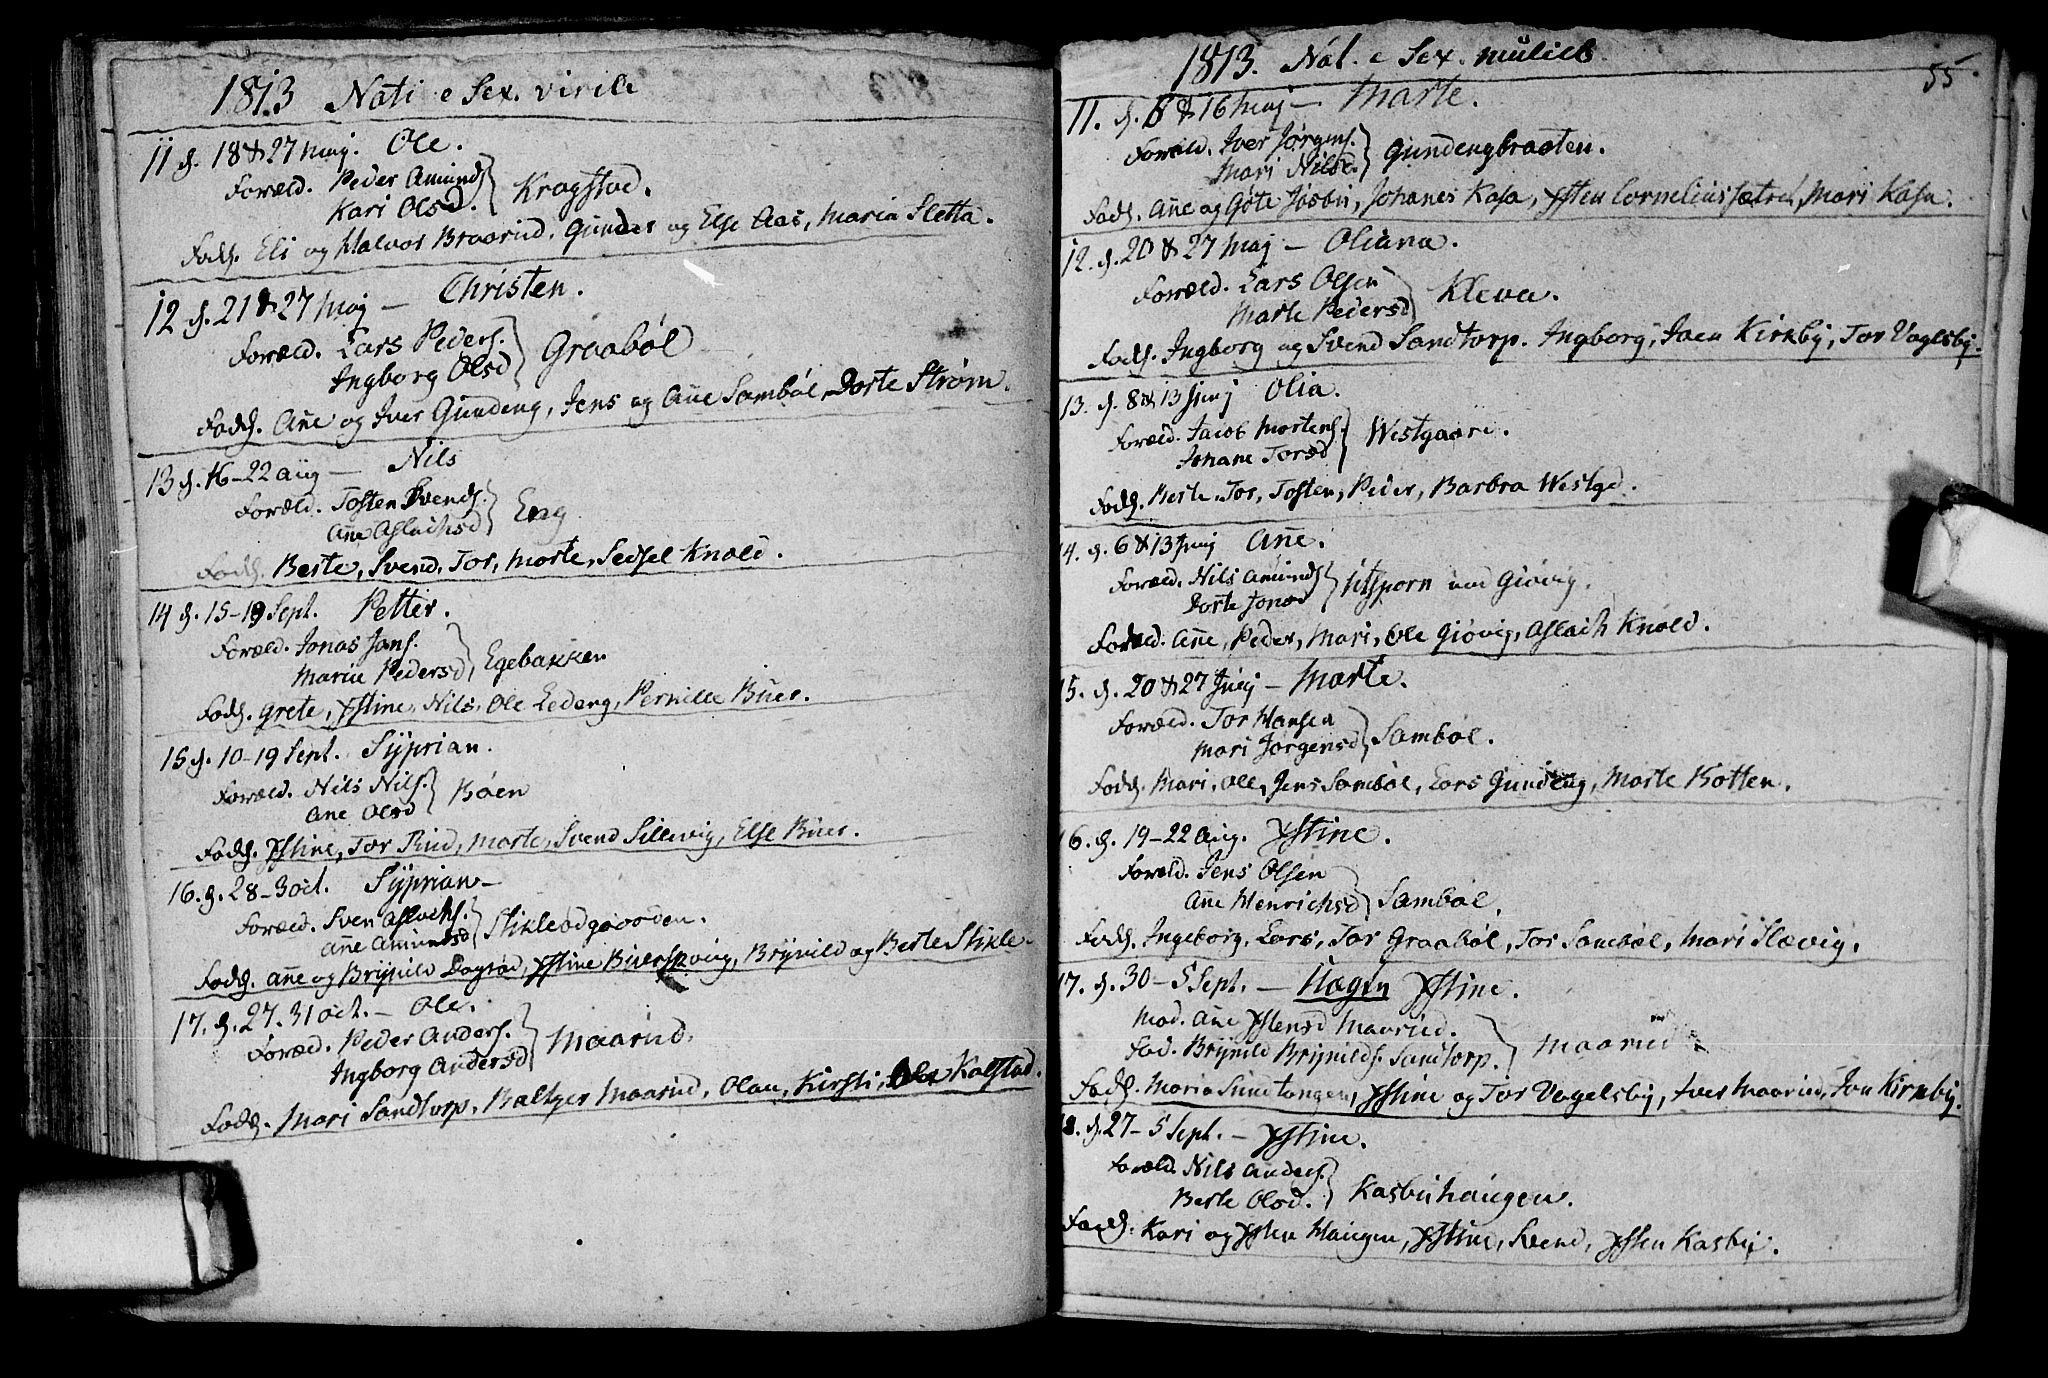 1813 Nati e Sex. virili
11 d. 18 & 27 Maj. Ole.
Foræld. Peder Amunds. Kari Olsd. } Kragstad.
Fadd. Eli og Halvor Braarud, Gunder og Else Aas, Maria Sletta.
12 d. 21 & 27 Maj — Christen.
Foræld. Lars Peders.
Ingborg Olsd } Graabøl
Fadd. Añe og Iver Gundeng, Jens og Añe Sambøl, Dorte Strøm.
13 d. 16–22 Aug — Nils
Foræld. Tosten Svends.
Añe Aslachsd } Eng
Fadd. Berte, Svend, Tor, Marte, Sedsel Knold.
14 d. 15–19 Sept. Petter.
Foræld. Jonas Jans.
Marie Pedersd } Egebakken
Fadd. Grete, Xstine, Nils, Ole Ledeng, Pernille Buer.
15 d. 10–19 Sept. Syprian.
Foræld. Nils Nils.
Ane Olsd } Bøen
Fadd. Xstine, Tor Rud, Marte, Svend Sillevig, Else Buer.
16. d. 28–3 Oct. Syprian —
Foræld. Sven Aslachs.
Añe Amundsd }
Fadd. Añe og Brynild Dagrød, Xstine, Brynild og Berte Stikle
17. d. 27. 31 Oct. — Ole.
Foræld. Peder Anders.
Ingborg Andersd } Maarud.
Fadd. Mari Sandtorp, Baltzer Maarud, Olau, Kirsti, Ole Kalstad.
1813. Nat. e Sex. mulieb. 55
11. d. 8 & 16 Maj — Marte.
Foræld. Iver Jørgens.
Mari Nilsd. } Gundengbraaten.
Fadd. Añe og Gøte Josbu, Johanes Kasa, Xsten Cornelius, Mari Kasa.
12. d. 20 & 27 Maj — Oliana.
Foræld. Lars Olsen
Marte Pedersd } Kleva.
Fadd. Ingborg og Svend Sandtorp. Ingborg, Joen Kirkby, Tor Vaglsby.
13. d. 8 & 13 Junj Olia.
Foræld. Jacob Mortens.
Johane Torsd } Westgaare.
Fadd. Berte, Tor, Tosten, Peder, Barbra Westgd.
14. d. 6 & 13 Junj Añe.
Foræld. Nils Amunds
Dorte Jonsd } Gjøvig.
Foræld. Añe, Peder, Mari, Ole Giøvig, Aslach Knold.
15. d. 20 & 27 Junj — Marte.
Foræld. Tor Hansen
Mari Jørgensd } Sambøl.
Fadd. Mari, Ole, Jens Sambøl, Lars Gundeng, Marte Botten.
16. d. 19–22 Aug. Xstine.
Foræld. Jens Olsen
Añe Henrichsd } Sambøl.
Fadd. Ingeborg, Lars, Tor Graabøl, Tor Sambøl, Mari Slævig.
17. d. 30–5 Sept. — Uægte Xstine.
Mod. Añe Xstensd Maarud.
Fad. Brynild Brynilds. Sandtorp. } Maarud
Fadd. Maria Sundtangen, Xstine og Tor Vagelsby, Iver Maarud, Jon Kirkeby.
18. d. 27–5 Sept. — Xstine.
Foræld. Nils Anders.
Berte Olsd. } Kasbuhaugen.
Fadd. Kari og Xsten Haugen, Xstine, Svend, Xsten Kasby.